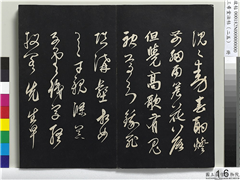 沈動春酌燈
前細雨簷花落
但覺高歌有鬼
神焉知餓死
填溝壑相如
逸才親滌
器子雲識字終
投閣先生早
16